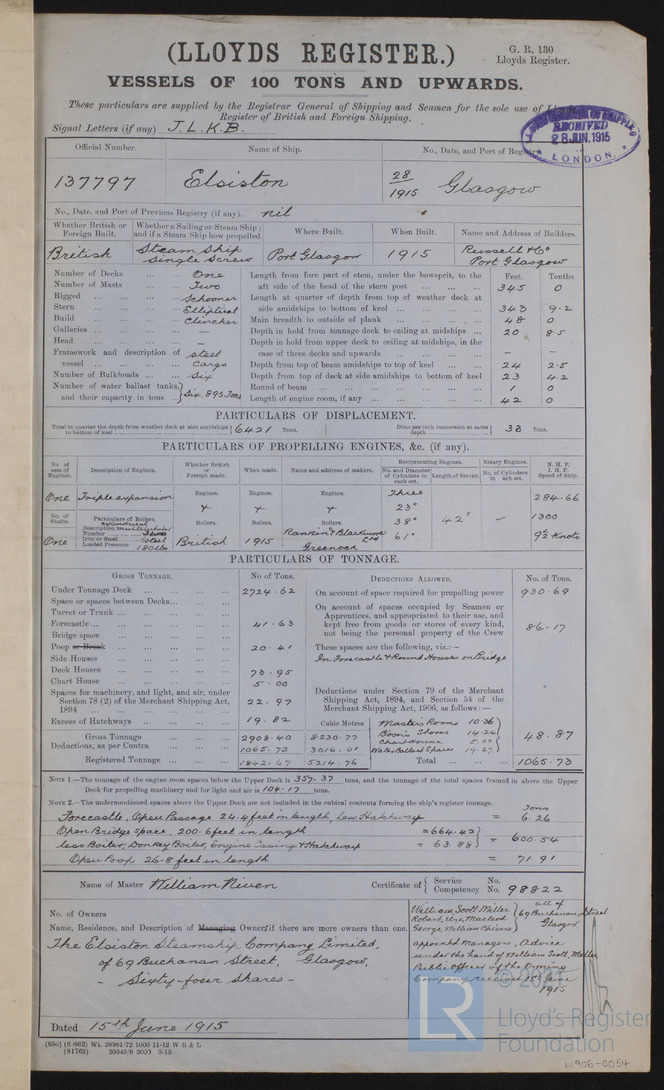 (LLOYDS REGISTER.)
G. R. 130
Lloyds Register.
VESSELS OF 100 TONS AND UPWARDS.
These particulars are supplied by the Registrar General of Shipping and Seamen for the sole use of Lloyds
Register of British and Foreign Shipping.
Signal Letters (if any) J.L.K.B.
RECEIVED
28 JUN. 1915
LONDON.
Official Number. Name of Ship. No., Date, and Port of Registry
137797 Elsiston 28/1915 Glasgow
No., Date, and Port of Previous Registry (if any). nil
Whether British or Foreign Built. Whether a Sailing or Steam Ship; and if a Steam Ship how propelled. Where Built. When Built. Name and Address of Builders.
British Steam Ship Single Screw Port Glasgow 1915 Russell & Co Port Glasgow
Number of Decks One
Number of Masts Two
Rigged Schooner
Stern Elliptical
Build Clincher
Galleries —
Head —
Framework and description of vessel Steel Cargo
Number of Bulkheads Six
Number of water ballast tanks, and their capacity in tons Six. 895 Tons
Feet. Tenths.
Length from fore part of stem, under the bowsprit, to the aft side of the head of the stern post 345 0
Length at quarter of depth from top of weather deck at side amidships to bottom of keel 343 9.2
Main breadth to outside of plank 48 0
Depth in hold from tonnage deck to ceiling at midships 20 85
Depth in hold from upper deck to ceiling at midships, in the case of three decks and upwards — —
Depth from top of beam amidships to top of keel 24 2.5
Depth from top of deck at side amidships to bottom of keel 23 4.2
Round of beam 1 0
Length of engine room, if any 42 0
PARTICULARS OF DISPLACEMENT.
Total to quarter the depth from weather deck at side amidships to bottom of keel 6421 Tons. Ditto per inch immersion at same depth 38 Tons.
PARTICULARS OF PROPELLING ENGINES, &c. (if any).
No. of sets of Engines. Description of Engines. Whether British or Foreign made. When made. Name and address of makers. Reciprocating Engines. No. and Diameter of Cylinders in each set. Length of Stroke. Rotary Engines. No. of Cylinders in each set. N. H. P. I. H. P. Speed of Ship.
One Triple expansion Engines. Engines. Engines. Three 284.66
No. of Shafts. Particulars of Boilers. 23" 38" 61" 42" — 1300
Description cylindrical multitubular
Number Two
Iron or Steel Steel
Loaded Pressure 180 lbs
Boilers. Boilers. Boilers.
One British 1915 Rankin & Blackmore Ltd Greenock 9½ Knots
PARTICULARS OF TONNAGE.
GROSS TONNAGE. No of Tons. DEDUCTIONS ALLOWED. No. of Tons.
Under Tonnage Deck 2724.62
Space or spaces between Decks
Turret or Trunk
Forecastle 41.63
Bridge space
Poop or Break 20.41
Side Houses
Deck Houses 73.95
Chart House 5.00
Spaces for machinery, and light, and air, under Section 78 (2) of the Merchant Shipping Act, 1894 22.97
Excess of Hatchways 19.82
Cubic Metres
Gross Tonnage 2908.40 8230.77
Deductions, as per Contra 1065.73 3016.01
Registered Tonnage 1842.67 5214.76
On account of space required for propelling power 930.69
On account of spaces occupied by Seamen or Apprentices, and appropriated to their use, and kept free from goods or stores of every kind, not being the personal property of the Crew 86.17
These spaces are the following, viz.:—
In Forecastle & Round Houses on Bridge
Deductions under Section 79 of the Merchant Shipping Act, 1894, and Section 54 of the Merchant Shipping Act, 1906, as follows:—
Master's Rooms 10.36
Boson's Stores 14.24
Chart House 5.00
Water Ballast Spaces 19.27
48.87
Total 1065.73
NOTE 1.—The tonnage of the engine room spaces below the Upper Deck is 357.37 tons, and the tonnage of the total spaces framed in above the Upper
Deck for propelling machinery and for light and air is 104.17 tons.
NOTE 2.—The undermentioned spaces above the Upper Deck are not included in the cubical contents forming the ship's register tonnage.
Tons
Forecastle, Open Passage 24.4 feet in length, less Hatchway = 6.26
Open Bridge Space, 200.6 feet in length = 664.42
less Boiler, Donkey Boiler, Engine Casing & Hatchway = 63.88 = 600.54
Open Poop 26.8 feet in length = 71.91
Name of Master William Niven Certificate of Service No. Competency No. 98822
No. of Owners
Name, Residence, and Description of Managing Owner, if there are more owners than one.
The Elsiston Steamship Company Limited,
of 69 Buchanan Street, Glasgow,
- Sixty-four Shares -
William Scott Miller
Robert Ure Macleod
George William Chivers
all of 69 Buchanan Street Glasgow
appointed Managers. Advice
under the hand of William Scott Miller
Public Officer of the Owning
Company received 15 June
1915
Dated 15th June 1915
(830) (6/862) Wt. 28981/72 1000 11-12 W B & L
(81762) 20349/8 2000 3-13
© 2021
LR
Lloyd's Register
Foundation
W906-0054